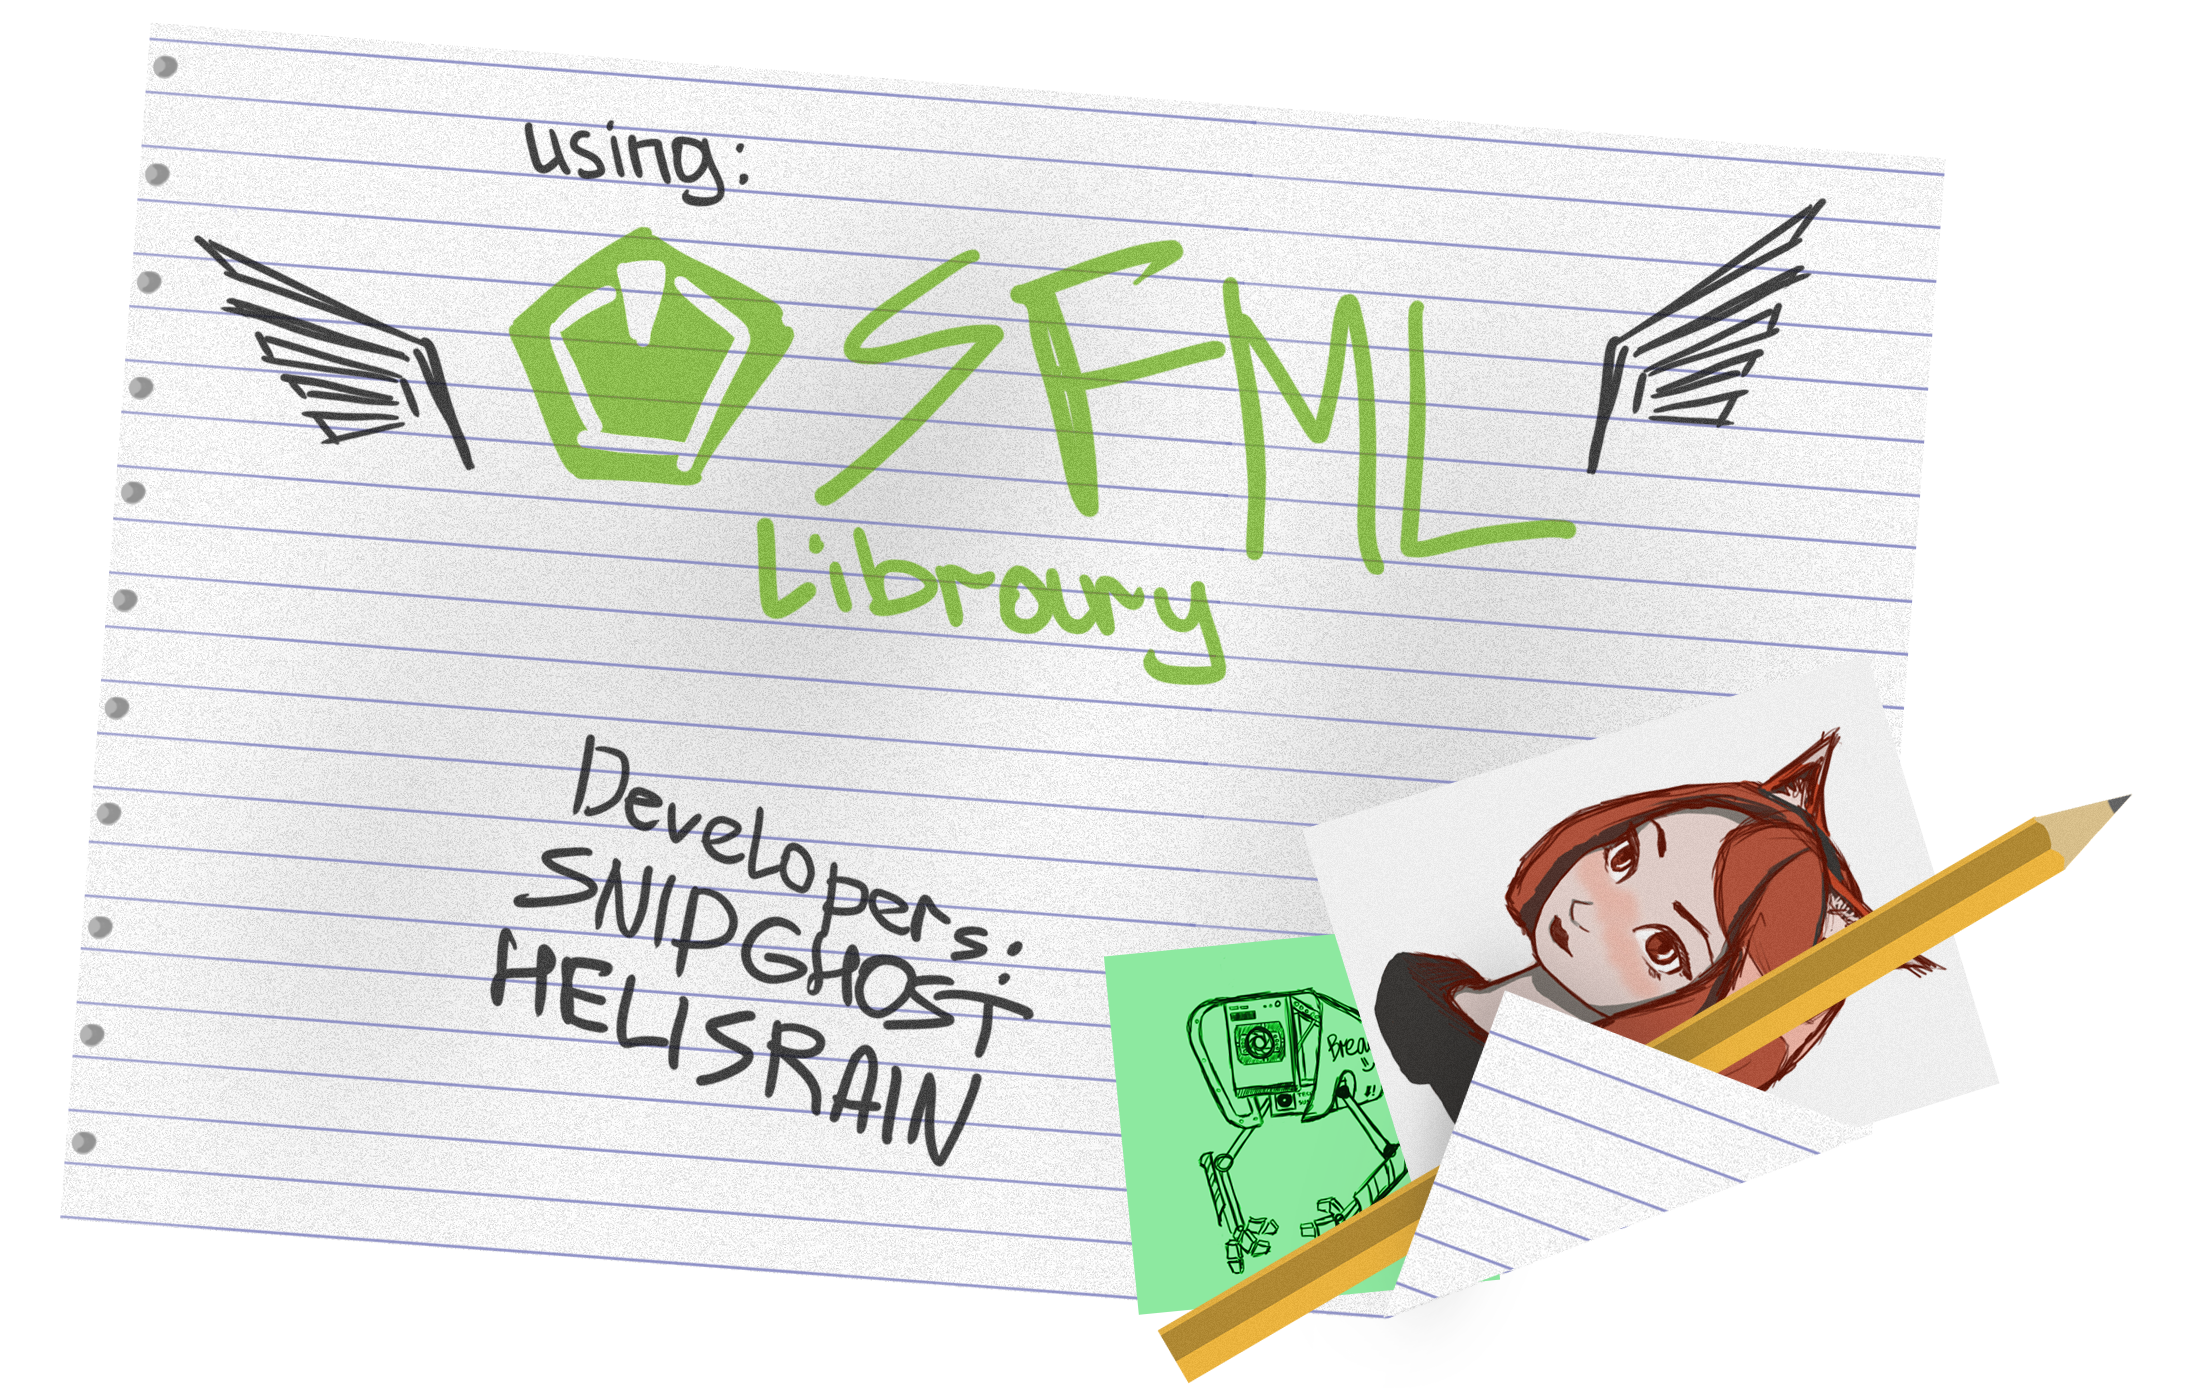 using:
SFML
Library
Developers:
SNIPGHOST
HELISRAIN
Brea